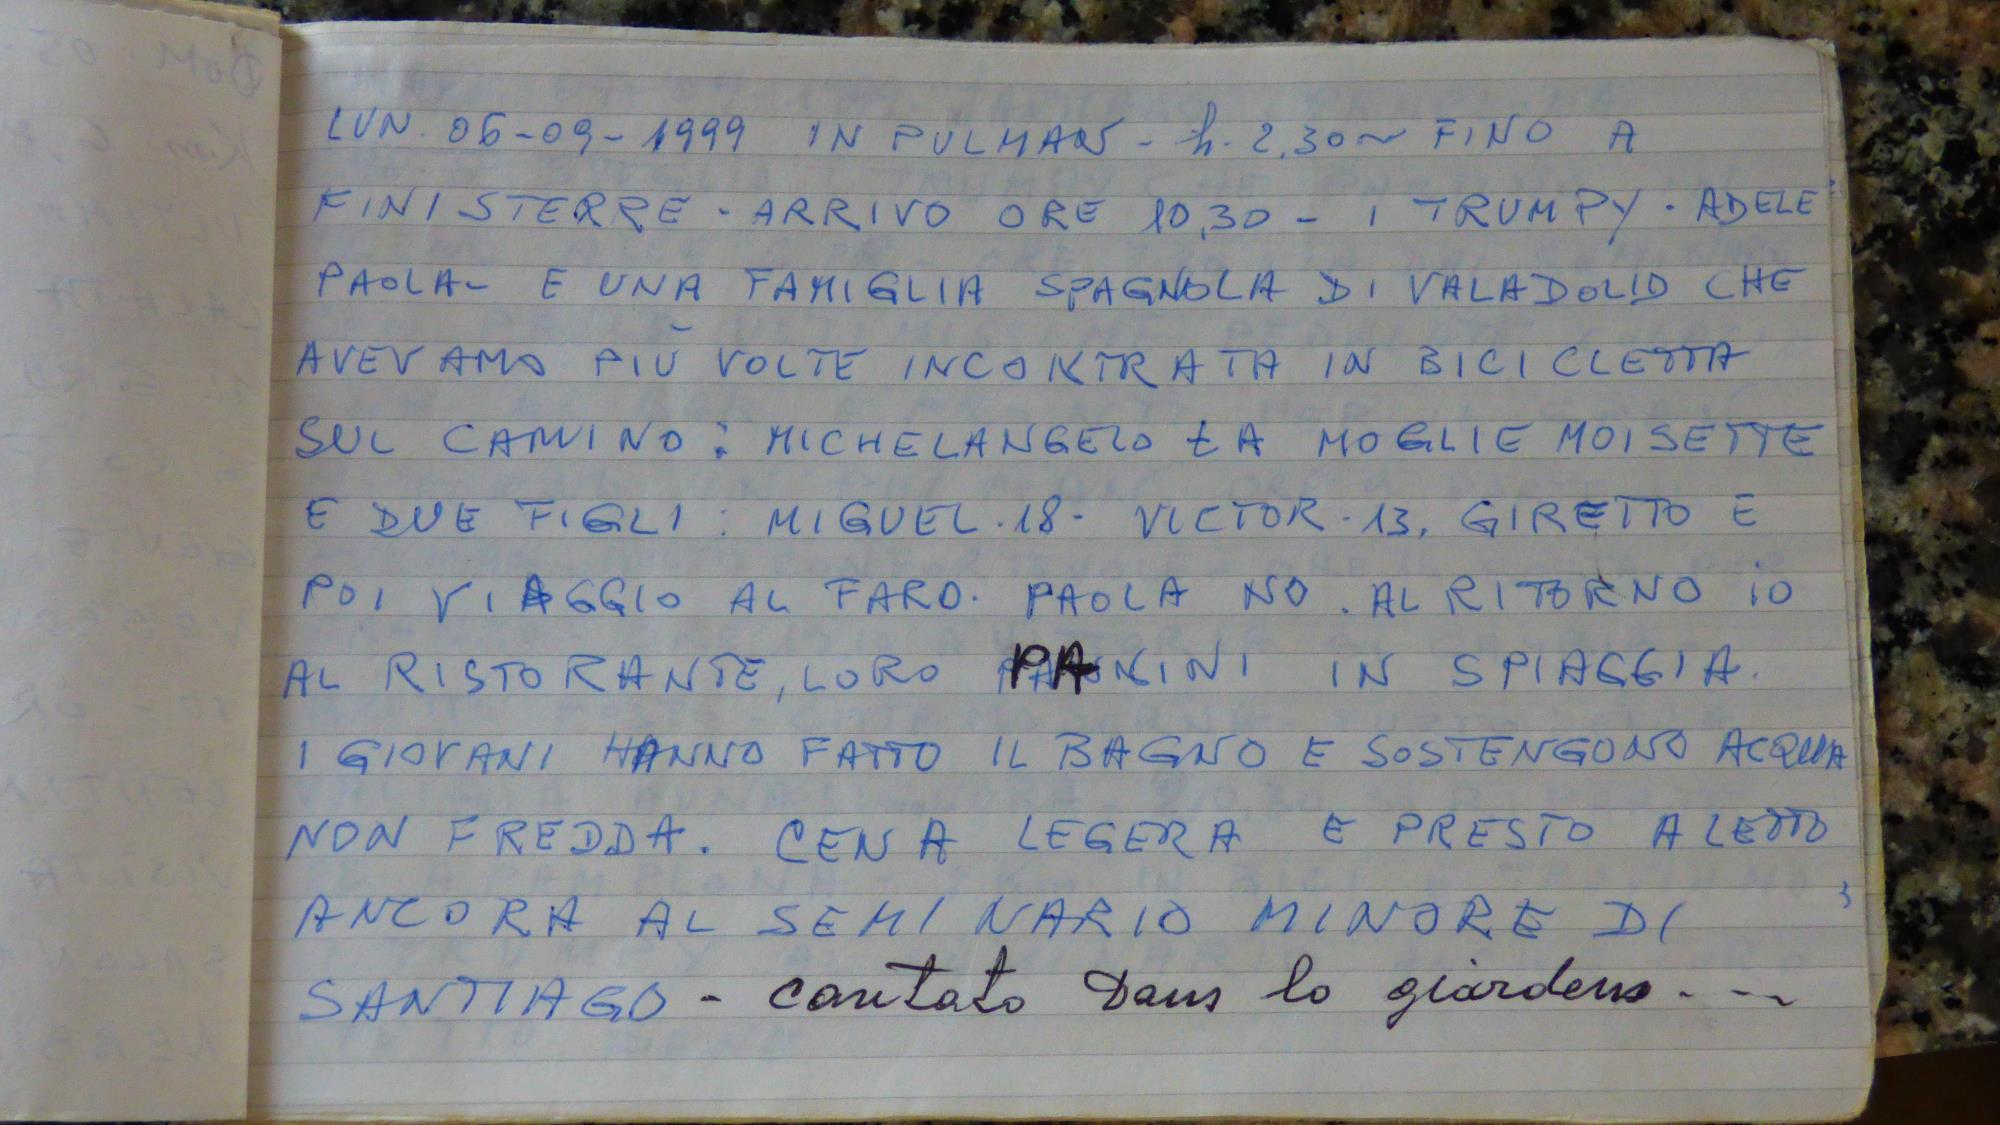 LUN. 06-09-1999 IN PULMAN - h. 2,30~ FINO A
FINISTERRE - ARRIVO ORE 10,30 - I TRUMPY - ADELE
PAOLA - E UNA FAMIGLIA SPAGNOLA DI VALADOLID CHE
AVEVAMO PIÙ VOLTE INCONTRATA IN BICICLETTA
SUL CAMINO : MICHELANGELO LA MOGLIE MOISETTE
E DUE FIGLI : MIGUEL - 18 - VICTOR - 13, GIRETTO E
POI VIAGGIO AL FARO. PAOLA NO. AL RITORNO IO
AL RISTORANTE, LORO PANINI IN SPIAGGIA.
I GIOVANI HANNO FATTO IL BAGNO E SOSTENGONO ACQUA
NON FREDDA. CENA LEGERA E PRESTO A LETTO
ANCORA AL SEMINARIO MINORE DI
SANTIAGO - cantato Dans lo giardens - - ~